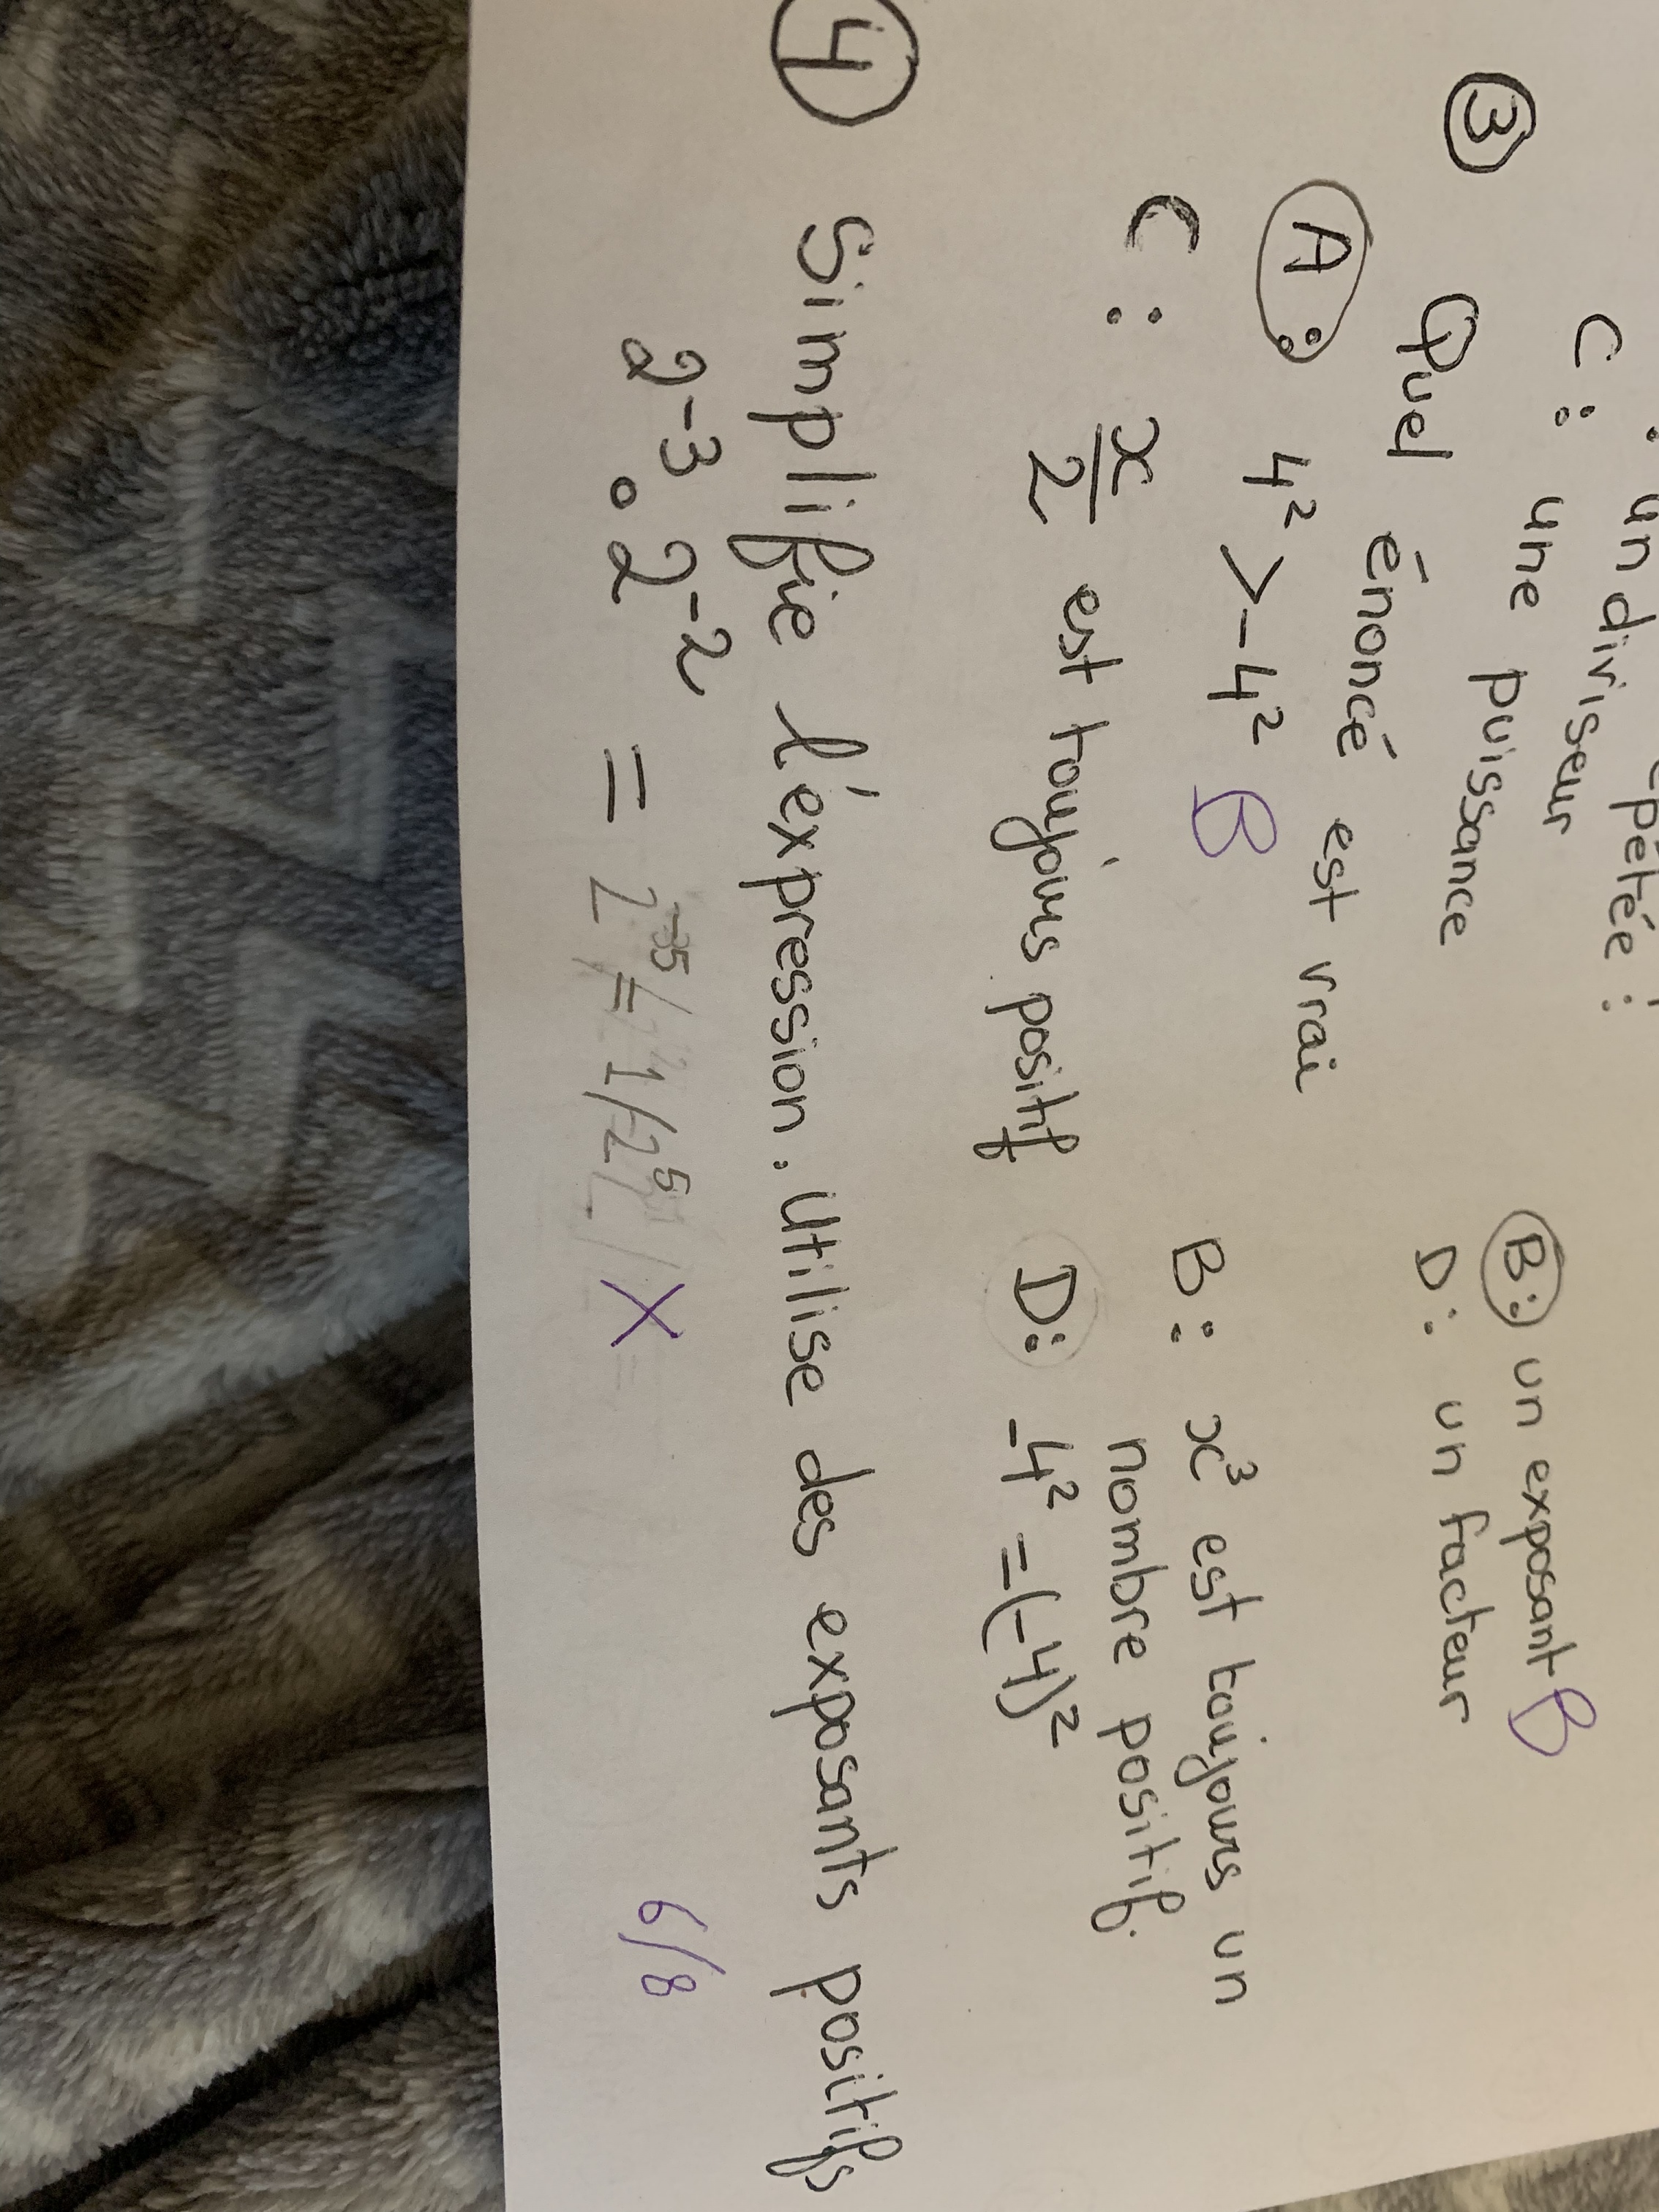 épétée :
un diviseur
C : une puissance
B : un exposant B
D : un facteur
③ Quel énoncé est vrai
A : 4² > -4² B
B : x³ est toujours un
nombre positif.
C : x/2 est toujours positif
D : -4² = (-4)²
④ Simplifie l'expression. Utilise des exposants positifs
2⁻³ · 2⁻² =
X
6/8